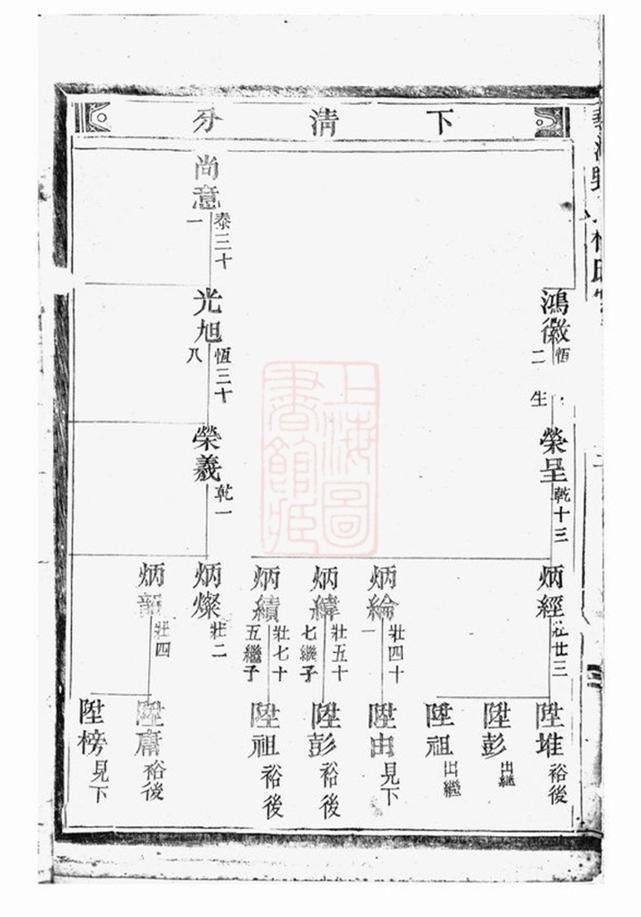 下清分
鴻徽 恆
二
生
榮呈 乾十三
炳經 壯廿三
陞堆 裕後
陞彭 出繼
陞祖 出繼
炳綸 壯四十
一
陞由 見下
炳緯 壯五十
七繼子
陞彭 裕後
炳績 壯七十
五繼子
陞祖 裕後
尚意 泰三十
一
光旭 恆三十
八
榮義 乾一
炳燦 壯二
炳韶 壯四
陞庸 裕後
陞榜 見下
上海圖書館藏